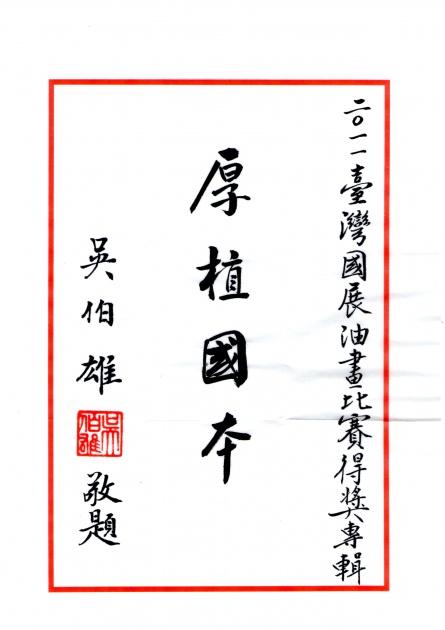 二〇一一臺灣國展油畫比賽得獎專輯
厚植國本
吳伯雄
吳伯雄
敬題